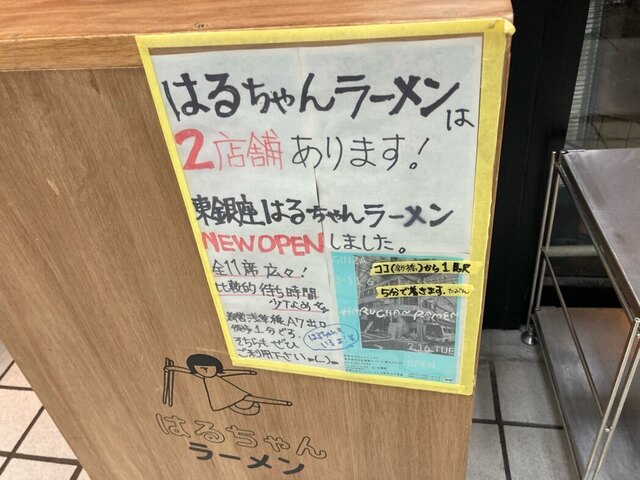 はるちゃんラーメンは
2店舗あります!
東銀座はるちゃんラーメン
NEW OPENしました。
全11席広々!
比較的待ち時間
少なめです。
都営浅草線A7出口
徒歩1分です。
そちらもぜひ
ご利用下さいm(_ _)m
はるちゃんも
いますよ
GINZA
ココ(新橋)から1駅
5分で着きます。たぶん
HARUCHAN RAMEN
2.16.TUE
OPEN
はるちゃん
ラーメン